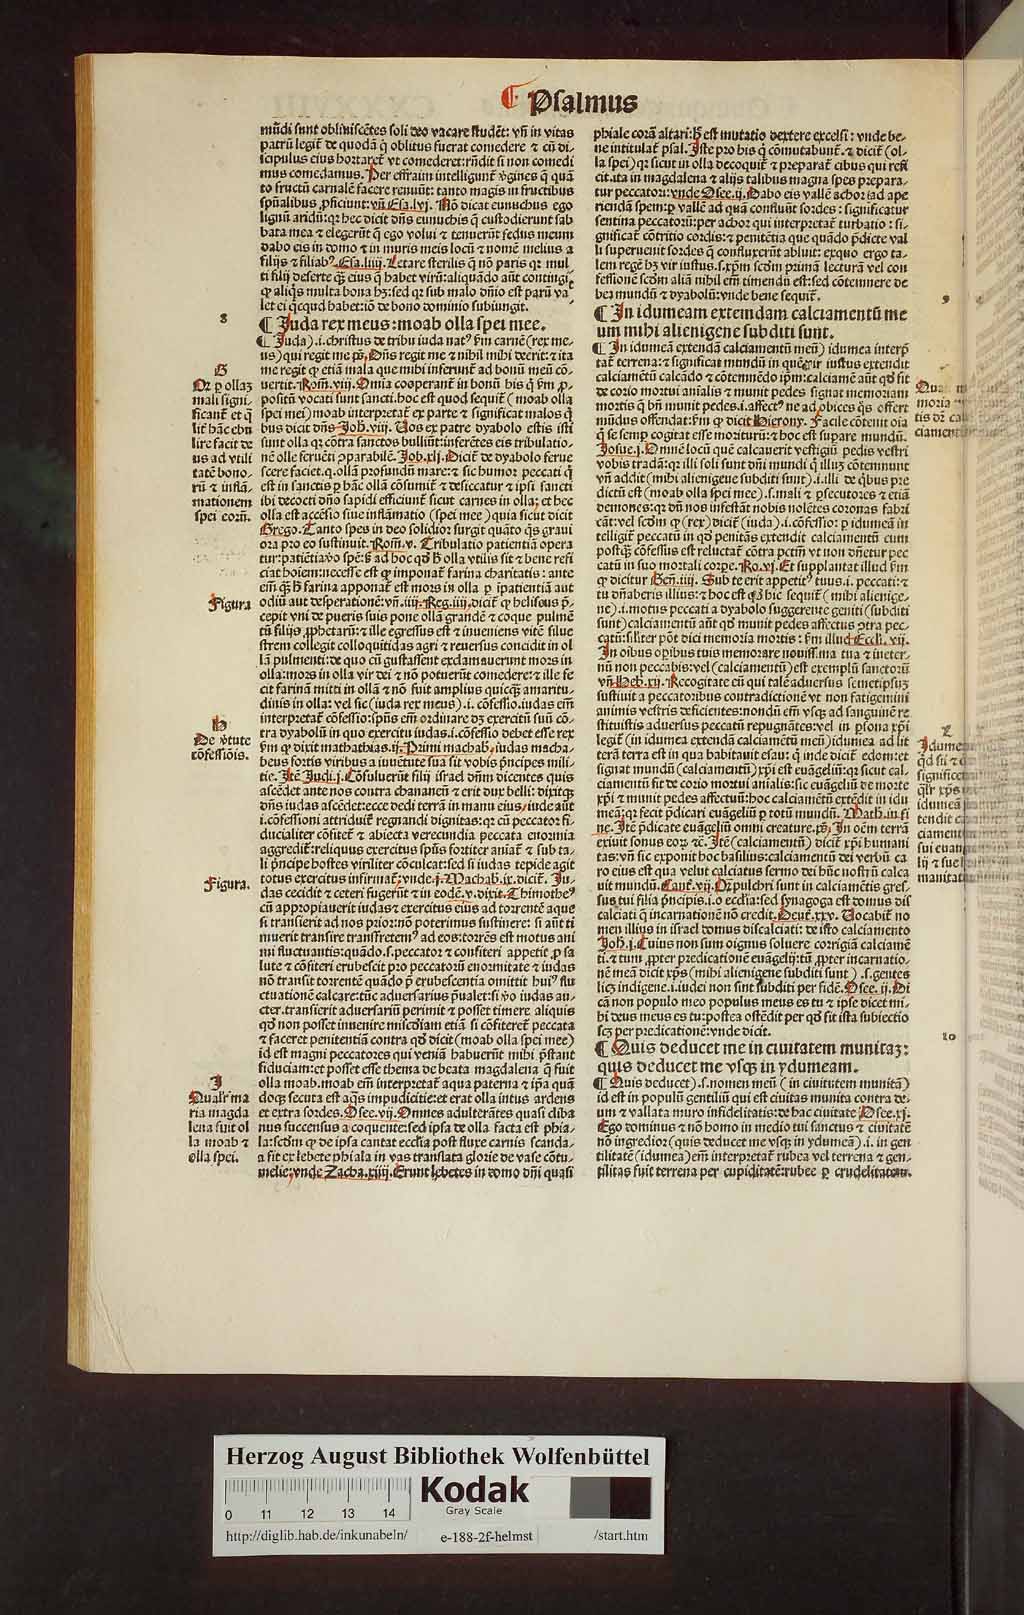 ¶ Psalmus
mūdi sunt obliuiscētes soli deo vacare studēt: vñ in vitas
patrū legit̄ de quodā q̇ oblitus fuerat comedere ⁊ cū di-
scipulus eius hortaret̄ vt comederet: rñdit si non comedi
mus comedamus. Per effraim intelligunt̄ v̄gines q̄ quā
to fructū carnalē facere renuūt: tanto magis in fructibus
spūalibus ꝓficiunt: vñ Esa. lvj. Nō dicat eunuchus ego
lignū aridū: qꝛ hec dicit dn̄s eunuchis q̇ custodierunt sab
bata mea ⁊ elegerūt q̄ ego volui ⁊ tenuerūt fedus meum
dabo eis in domo ⁊ in muris meis locū ⁊ nomē melius a
filijs ⁊ filiabꝰ. Esa. liiij. Letare sterilis q̄ nō paris qꝛ mul
ti filij deserte
let ei q̇cqud habet: iō de bono dominio subiungit.
8
¶ Juda rex meus: moab olla spei mee.
¶ Juda) .i. christus de tribu iuda natꝰ ẜm carnē (rex me-
us) qui regit me pꝫ. Dn̄s regit me ⁊ nihil mihi deerit: ⁊ ita
me regit ꝙ etiā mala que mihi inferunt̄ ad bonū meū cō-
uertit. Rom̄. viij. Omnia cooperant̄ in bonū his q̇ ẜm ꝓ-
positū vocati sunt sancti. hoc est quod sequit̄ (moab olla
spei mei) moab interpretat̄ ex parte ⁊ significat malos q̇
bus dicit dn̄s Joh. viij. Uos ex patre dyabolo estis isti
sunt olla qꝛ cōtra sanctos bulliūt: inferētes eis tribulatio-
nē olle feruēti ꝯparabilē. Job. xlj. Dicit̄ de dyabolo ferue
scere faciet. q. ollā profundū mare: ⁊ sic humor peccati q̇
est in sanctis ꝑ hāc ollā cōsumit̄ ⁊ desiccatur ⁊ ipsi sancti
ibi decocti dn̄o sapidi efficiunt̄ sicut carnes in olla; et hec
olla est accēsio siue inflāmatio (spei mee) quia sicut dicit
Grego. Tanto spes in deo solidior surgit quāto q̇s graui
ora pro eo sustinuit. Rom̄. v. Tribulatio patientiā opera
G
Qꝛ ꝑ ollaꝫ
mali signi-
ficant̄ et q̇
lit̄ hāc ebu
lire facit de
us ad vtili
tatē bono-
rū ⁊ inflā-
mationem
spei eorū.
Figura
odiū aut desperationē: vñ. iiij. Reg. iiij. dicit̄ ꝙ heliseus p̄-
cepit vni de pueris suis pone ollā grandē ⁊ coque pulmē
tū filijs ꝓphetarū: ⁊ ille egressus est ⁊ inueniens vitē silue
strem collegit colloquitidas agri ⁊ reuersus concidit in ol
lā pulmenti: de quo cū gustassent exclamauerunt mors in
olla: mors in olla vir dei ⁊ nō potuerūt comedere: ⁊ ille fe
cit farinā mitti in ollā ⁊ nō fuit amplius quicq̄ꝫ amaritu-
dinis in olla: vel sic (iuda rex meus) .i. cōfessio. iudas em̄
interpretat̄ cōfessio: ipsius em̄ ordinare dꝫ exercitū suū cō-
tra dyabolū in quo exercitu iudas. i. cōfessio debet esse rex
ẜm ꝙ dixit mathathias. ij. Primi machab. iudas macha-
beus fortis viribus a iuuētute sua sit vobis p̄nceps mili-
H
De v̄tute
cōfessiōis.
tie. Itē Judi. j. Cōsuluerūt filij israel dn̄m dicentes quis
ascēdet ante nos contra chananeū ⁊ erit dux belli: dixitqꝫ
dn̄s iudas ascēdet: ecce dedi terrā in manu eius; iude aūt
.i. cōfessioni attribuit̄ regnandi dignitas: qꝛ cū peccator fi-
ducialiter cōfitet̄ ⁊ abiecta verecundia peccata enormia
aggredit̄: reliquus exercitus spūs fortiter aniat̄ ⁊ sub ta-
li p̄ncipe hostes viriliter cōculcat: sed si iudas tepide agit
totus exercitus infirmat̄; vnde .j. Machab. ix. dicit̄. Ju-
das cecidit ⁊ ceteri fugerūt ⁊ in eodē. v. dixit. Thimotheꝰ
cū appropiauerit iudas ⁊ exercitus eius ad torrentē aque
si transierit ad nos prior: nō poterimus sustinere: si aūt ti
muerit transire transfretemꝰ ad eos: torrēs est motus ani
mi fluctuantis: quādo. s. peccator ⁊ confiteri appetit ꝓ sa
lute ⁊ cōfiteri erubescit pro peccatorū enormitate ⁊ iudas
nō transit torrentē quādo ꝑ erubescentia omittit huiꝰ flu
ctuationē calcare: tūc aduersarius p̄ualet: si v̄o iudas au-
cter. transierit aduersariū perimit ⁊ posset timere aliquis
qd̄ non posset inuenire miscd̄iam etiā si cōfiteret̄ peccata
⁊ faceret penitentiā contra qd̄ dicit (moab olla spei mee)
id est magni peccatores qui veniā habuerūt mihi p̄stant
fiduciam: et posset esse thema de beata magdalena q̄ fuit
olla moab. moab em̄ interpretat̄ aqua paterna ⁊ ip̄a quā
doqꝫ secuta est aq̄s impudicitie: et erat olla intus ardens
et extra sordes. Osee. vij. Omnes adulterātes quasi cliba
nus succensus a coquente: sed ipsa de olla facta est phia-
la: scd̄m ꝙ de ipsa cantat ecclia post fluxe carnis scanda-
la fit ex lebete phiala in vas translata glorie de vase cōtu-
melie; vnde Zacha. xiiij. Erunt lebetes in domo dn̄i quasi
Figura.
J
Qualr̄ ma
ria magda
lena fuit ol
la moab ⁊
olla spei.
phiale corā altari: hꝫ est mutatio dextere excelsi: vnde be-
ne intitulat̄ psal. Iste pro his q̇ cōmutabunt̄. ⁊ dicit̄ (ol-
la spei) qꝛ sicut in olla decoquit̄ ⁊ preparat̄ cibus qui refi
cit. ita in magdalena ⁊ alijs talibus magna spes prepara-
tur peccatori: vnde Osee. ij. Dabo eis vallē achor ad ape
riendā spem: ꝑ vallē ad quā confluūt sordes: significatur
sentina peccatorū: per achor qui interpretat̄ turbatio: si-
gnificat̄ cōtritio cordis: ⁊ penitētia que quādo p̄dicte val
li superuenit sordes q̄ confluxerūt abluit: exquo ergo ta-
lem regē hꝫ vir iustus. s. xp̄m scd̄m primā lecturā vel con
fessionē scd̄m aliā nihil em̄ timendū est: sed cōtemnere de
bea mundū ⁊ dyabolū: vnde bene sequit̄.
9
¶ In idumeam extendam calciamentū me
um mihi alienigene subditi sunt.
¶ In idumeā extendā calciamentū meū) idumea interp̄
tat̄ terrena: ⁊ significat mundū in quē vir iustus extendit
calciamētū calcādo ⁊ cōtemnēdo ip̄m: calciamē aūt qd̄ fit
de corio mortui anīalis ⁊ munit pedes signat memoriam
mortis q̄ bn̄ munit pedes. i. affectꝰ ne ad obices q̄s offert
mūdus offendat: ẜm ꝙ dicit Hierony. Facile cōtēnit oīa
q̇ se semp̄ cogitat esse moriturū: ⁊ hoc est supare mundū.
Josue. j. Omnē locū quē calcauerit vestigiū pedis vestri
vobis tradā: qꝛ illi soli sunt dn̄i mundi q̇ illuꝫ cōtemnunt
vñ addit (mihi alienigene subditi sunt) .i. illi de q̇bus pre
dictū est (moab olla spei mee) .s. mali ⁊ ꝑsecutores ⁊ etiā
demones: qꝛ dū nos infestāt nobis nolētes coronas fabri
cāt: vel scd̄m ꝙ (rex) dicit̄ (iuda) .i. cōfessio: ꝑ idumeā in
telligit̄ peccatū in qd̄ penitēs extendit calciamentū cum
postq̄ꝫ cōfessus est reluctat̄ cōtra pctm̄ vt non dn̄etur pec
catū in suo mortali corpe. Ro. vj. Et supplantat illud ẜm
ꝙ dicitur Gen̄. iiij. Sub te erit appetitꝰ tuus. i. peccati: ⁊
tu dn̄aberis illius: ⁊ hoc est qd̄ hic sequit̄ (mihi alienige-
ne) .i. motus peccati a dyabolo suggerente geniti (subditi
sunt) calciamentū aūt qd̄ munit pedes affectus ꝯtra pec-
catū: silr̄ter pōt dici memoria mortis: ẜm illud Eccli. vij.
In oibus oꝑibus tuis memorare nouissima tua ⁊ in eter-
nū non peccabis: vel (calciamentū) est exemplū sanctorū
vñ Heb. xij. Recogitate eū qui talē aduersus semetipsuꝫ
sustinuit a peccatoribus contradictionē vt non fatigemini
animis vestris deficientes: nondū em̄ vsqꝫ ad sanguinē re
stitistis aduersus peccatū repugnātes: vel in ꝑsona xp̄i
legit̄ (in idumea extendā calciamētū meū) idumea ad lit
terā terra est in qua habitauit esau: q̇ inde dicit̄ edom: et
signat mundū (calciamentū) xp̄i est euāgeliū: qꝛ sicut cal-
ciamentū fit de corio mortui anīalis: sic euāgeliū de morte
xp̄i ⁊ munit pedes affectuū: hoc calciamētū extēdit in idu
meā: qꝛ fecit p̄dicari euāgeliū ꝑ totū mundū. Math. in fi
ne. Itē p̄dicate euāgeliū omni creature. pꝫ. In oēm terrā
exiuit sonus eoꝝ ⁊c. Itē (calciamentū) dicit̄ xp̄i humani
tas: vñ sic exponit hoc basilius: calciamentū dei verbū ca
ro eius est qua velut calciatus sermo dei hūc nostrū calca
uit mundū. Cant̄. vij. Qꝫ pulchri sunt in calciamētis gres-
sus tui filia p̄ncipis. i. o ecclia: sed synagoga est domus dis
calciati q̄ incarnationē nō credit. Deut̄. xxv. Uocabit̄ no
men illius in israel domus discalciati: de isto calciamento
Joh. j. Cuius non sum dignus soluere corrigiā calciamē
ti. ⁊ tum ꝓpter predicationē euāgelij: tū ꝓpter incarnatio-
nē meā dicit xp̄s (mihi alienigene subditi sunt) .s. gentes
licꝫ indigene. i. iudei non sint subditi per fidē. Osee. ij. Di
cā non populo meo populus meus es tu ⁊ ipse dicet mi-
hi deus meus es tu: postea ostēdit per qd̄ fit ista subiectio
scꝫ per predicationē: vnde dicit.
10
¶ Quis deducet me in ciuitatem munitaꝫ:
quis deducet me vsqꝫ in ydumeam.
¶ Quis deducet) .s. nomen meū (in ciuitatem munitā)
id est in populū gentiliū qui est ciuitas munita contra de-
um ⁊ vallata muro infidelitatis: de hac ciuitate Osee. xj.
Ego dominus ⁊ nō homo in medio tui sanctus ⁊ ciuitatē
nō ingredior (quis deducet me vsqꝫ in ydumeā) .i. in gen
tilitatē (idumeā) em̄ interpretat̄ rubea vel terrena ⁊ gen-
tilitas fuit terrena per cupiditatē: rubee ꝑ crudelitatem.
Herzog August Bibliothek Wolfenbüttel
0 11 12 13 14
Kodak
Gray Scale
http://diglib.hab.de/inkunabeln/ e-188-2f-helmst /start.htm